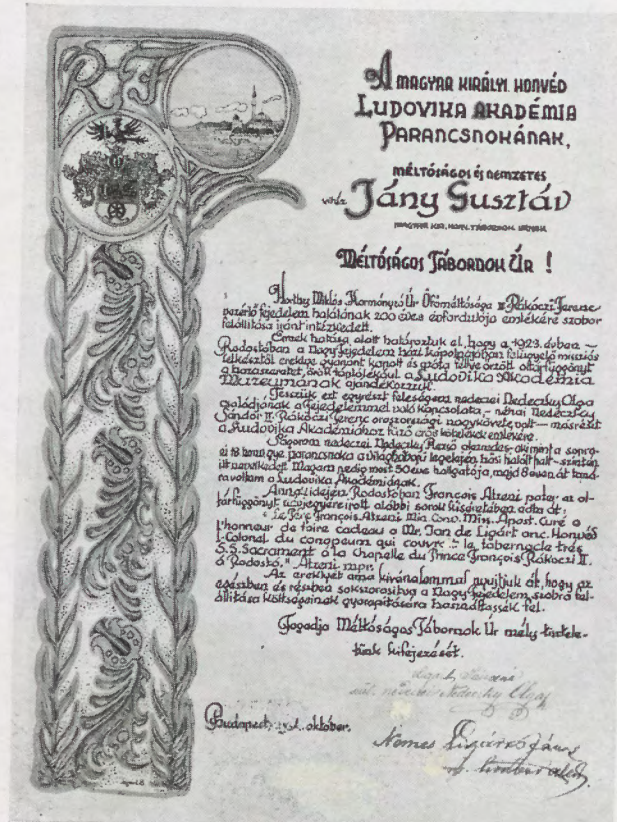 R F
A MAGYAR KIRÁLYI HONVÉD
LUDOVIKA AKADÉMIA
PARANCSNOKÁNAK,
MÉLTÓSÁGOS ÉS NEMZETES
vitéz Jány Gusztáv
MAGYAR KIR. HONV. TÁBORNOK ÚRNAK
MÉLTÓSÁGOS TÁBORNOK ÚR !
Horthy Miklós Kormányzó Úr Őfőméltósága II. Rákóczi Ferenc
vezérlő fejedelem halálának 200 éves évfordulója emlékére szobor
felállítása iránt intézkedett.
Ennek hatása alatt határoztuk el, hogy a 1923. évben –
Rodostóban a Nagyfejedelem házi kápolnájában felügyelő missiós
lelkésztől ereklye gyanánt kapott és azóta féltve őrzött oltárfüggönyt
a hazaszeretet, örök táplálékául a Ludovika Akadémia
Múzeumának ajándékozzuk.
Tesszük ezt egyrészt feleségem nedeczei Nedeczky Olga
családjának a fejedelemmel való kapcsolata, – néhai Nedeczky
Sándor II. Rákóczi Ferenc oroszországi nagykövete volt – másrészt
a Ludovika Akadémiához fűző erős kötelékek emlékére.
Sógorom nedeczei Nedeczky Rezső alezredes, aki mint a sopro-
ni 18 honv. gye. parancsnoka a világháború legelején hősi halált halt – szintén
itt nevelkedett. Magam pedig most 50 éve hallgatója, majd 8 éven át taná-
ra voltam a Ludovika Akadémiának.
Annakidején Rodostóban François Atzeni páter az ol-
tárfüggönyt, névjegyére írott alábbi sorok kíséretében adta át:
"Le Père François Atzeni Min. Conv. Miss. Apost. Curé a
l'honneur de faire cadeau a Mr. Jan de Ligárt anc. Honvéd
l. Colonal du conopeum qui couvre le tabernacle très
S.S. Sacrament à la Chapelle du Prince François Rákoczi II.
á Rodostó." Atzeni mpr.
Az ereklyét ama kívánalommal nyujtjuk át, hogy az
egészben és részben sokszorosítva a Nagy fejedelem, szobra fel-
állítása költségeinek gyarapítására használtassék fel.
Fogadja Méltóságos Tábornok Úr mély tisztele-
tünk kifejezését.
Nedeczky Olga
Budapest, október.
Nemes János